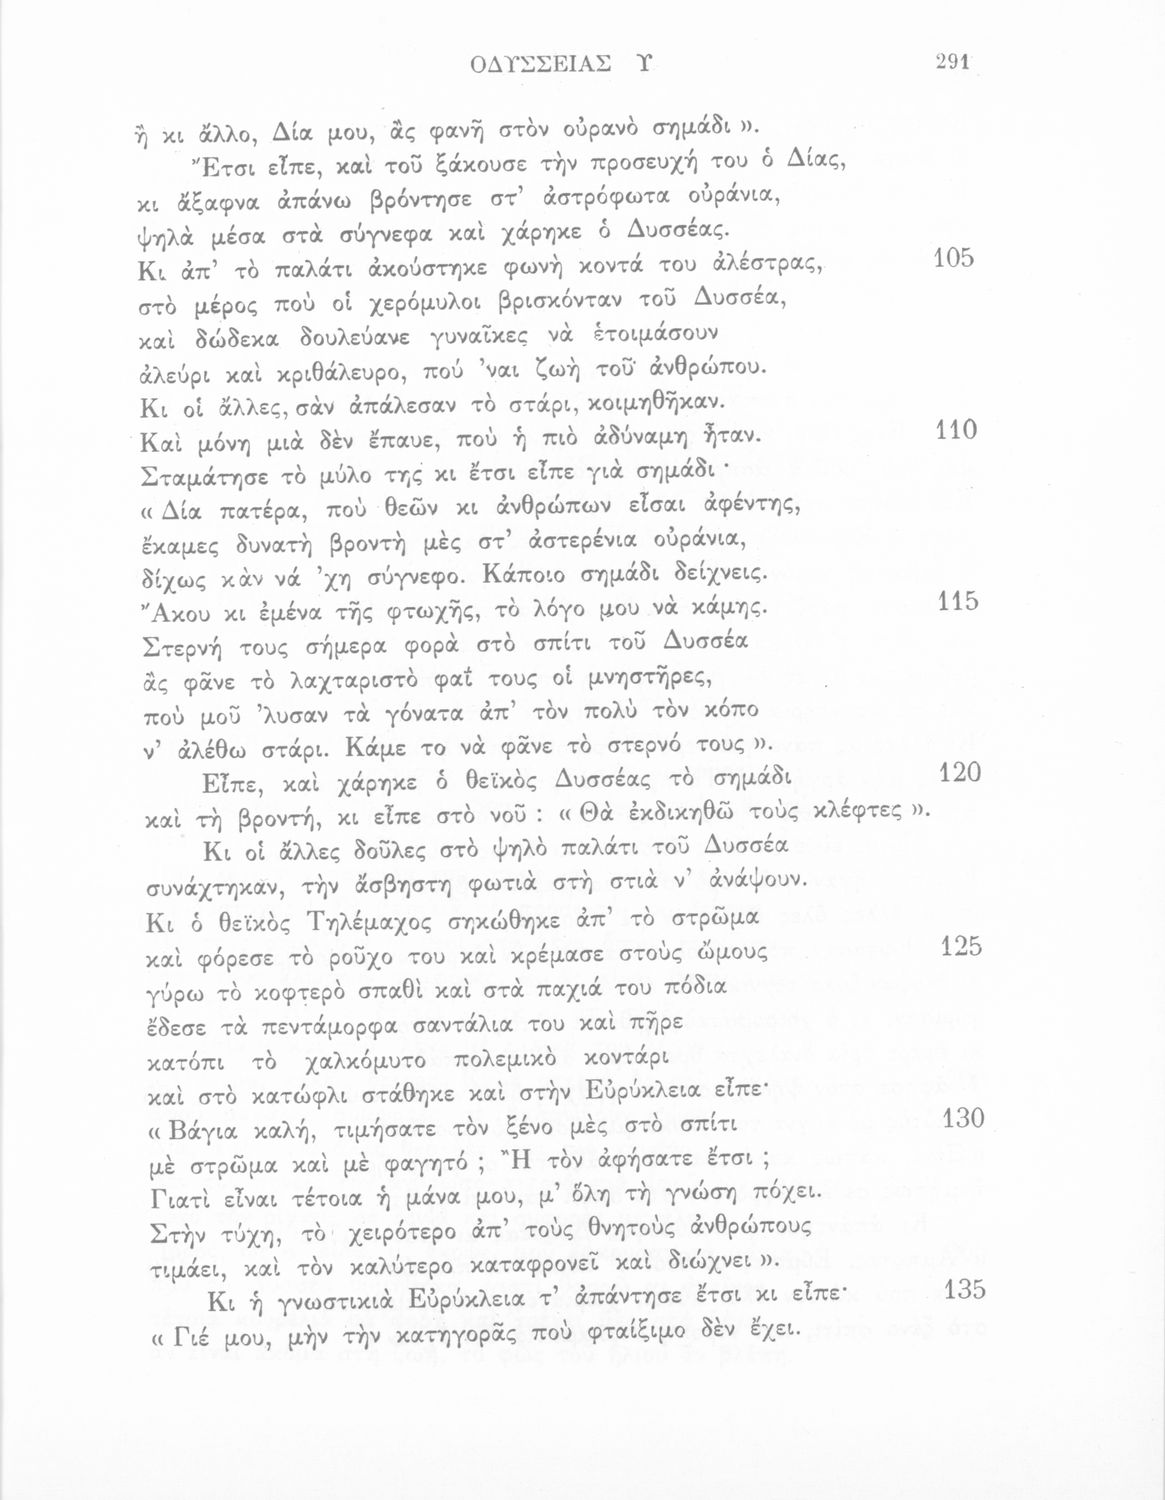 ΟΔΥΣΣΕΙΑΣ Υ 291
ἢ κι ἄλλο, Δία μου, ἂς φανῆ στὸν οὐρανὸ σημάδι ».
Ἔτσι εἶπε, καὶ τοῦ ξάκουσε τὴν προσευχή του ὁ Δίας,
κι ἄξαφνα ἀπάνω βρόντησε στ’ ἀστρόφωτα οὐράνια,
ψηλὰ μέσα στὰ σύγνεφα καὶ χάρηκε ὁ Δυσσέας.
Κι ἀπ’ τὸ παλάτι ἀκούστηκε φωνὴ κοντά του ἀλέστρας, 105
στὸ μέρος ποὺ οἱ χερόμυλοι βρισκόνταν τοῦ Δυσσέα,
καὶ δώδεκα δουλεύανε γυναῖκες νὰ ἑτοιμάσουν
ἀλεύρι καὶ κριθάλευρο, πού ’ναι ζωὴ τοῦ ἀνθρώπου.
Κι οἱ ἄλλες, σὰν ἀπάλεσαν τὸ στάρι, κοιμηθῆκαν.
Καὶ μόνη μιὰ δὲν ἔπαυε, ποὺ ἡ πιὸ ἀδύναμη ἦταν. 110
Σταμάτησε τὸ μύλο της κι ἔτσι εἶπε γιὰ σημάδι ·
« Δία πατέρα, ποὺ θεῶν κι ἀνθρώπων εἶσαι ἀφέντης,
ἔκαμες δυνατὴ βροντὴ μὲς στ’ ἀστερένια οὐράνια,
δίχως κὰν νά ’χη σύγνεφο. Κάποιο σημάδι δείχνεις.
Ἄκου κι ἐμένα τῆς φτωχῆς, τὸ λόγο μου νὰ κάμης. 115
Στερνή τους σήμερα φορὰ στὸ σπίτι τοῦ Δυσσέα
ἂς φᾶνε τὸ λαχταριστὸ φαΐ τους οἱ μνηστῆρες,
ποὺ μοῦ ’λυσαν τὰ γόνατα ἀπ’ τὸν πολὺ τὸν κόπο
ν’ ἀλέθω στάρι. Κάμε το νὰ φᾶνε τὸ στερνό τους ».
Εἶπε, καὶ χάρηκε ὁ θεϊκὸς Δυσσέας τὸ σημάδι 120
καὶ τὴ βροντή, κι εἶπε στὸ νοῦ : « Θὰ ἐκδικηθῶ τοὺς κλέφτες ».
Κι οἱ ἄλλες δοῦλες στὸ ψηλὸ παλάτι τοῦ Δυσσέα
συνάχτηκαν, τὴν ἄσβηστη φωτιὰ στὴ στιὰ ν’ ἀνάψουν.
Κι ὁ θεϊκὸς Τηλέμαχος σηκώθηκε ἀπ’ τὸ στρῶμα
καὶ φόρεσε τὸ ροῦχο του καὶ κρέμασε στοὺς ὤμους 125
γύρω τὸ κοφτερὸ σπαθὶ καὶ στὰ παχιά του πόδια
ἔδεσε τὰ πεντάμορφα σαντάλια του καὶ πῆρε
κατόπι τὸ χαλκόμυτο πολεμικὸ κοντάρι
καὶ στὸ κατώφλι στάθηκε καὶ στὴν Εὐρύκλεια εἶπε·
« Βάγια καλή, τιμήσατε τὸν ξένο μὲς στὸ σπίτι 130
μὲ στρῶμα καὶ μὲ φαγητό ; Ἢ τὸν ἀφήσατε ἔτσι ;
Γιατὶ εἶναι τέτοια ἡ μάνα μου, μ’ ὅλη τὴ γνώση πόχει.
Στὴν τύχη, τὸ χειρότερο ἀπ’ τοὺς θνητοὺς ἀνθρώπους
τιμάει, καὶ τὸν καλύτερο καταφρονεῖ καὶ διώχνει ».
Κι ἡ γνωστικιὰ Εὐρύκλεια τ’ ἀπάντησε ἔτσι κι εἶπε· 135
« Γιέ μου, μὴν τὴν κατηγορᾶς ποὺ φταίξιμο δὲν ἔχει.